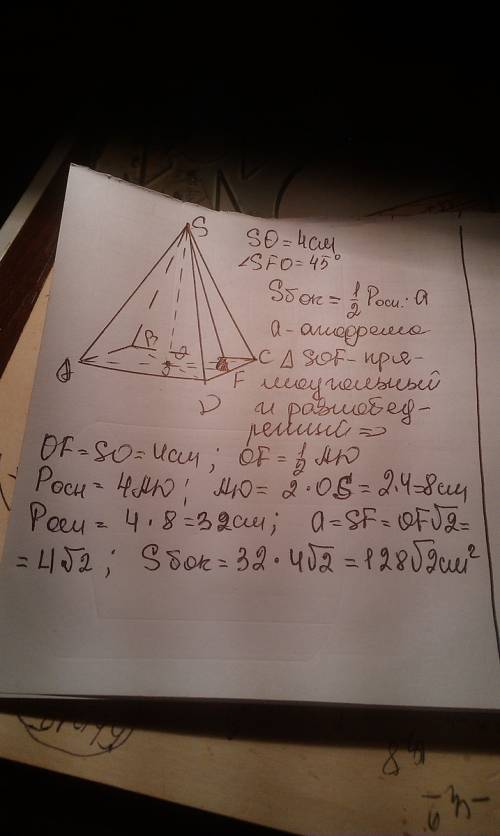 S
SO = 4см
∠SFO = 45°
Sбок = 1/2 Pосн. · a
a - апофема
B
O
A
C
F
D
△ SOF - пря-
моугольный
и равнобед-
ренный =>
OF = SO = 4см ; OF = 1/2 AD
Pосн = 4AD ; AD = 2 · OS = 2·4=8см
Pосн = 4 · 8 = 32см ; a = SF = OF√2 =
= 4√2 ; Sбок = 32 · 4√2 = 128√2см²